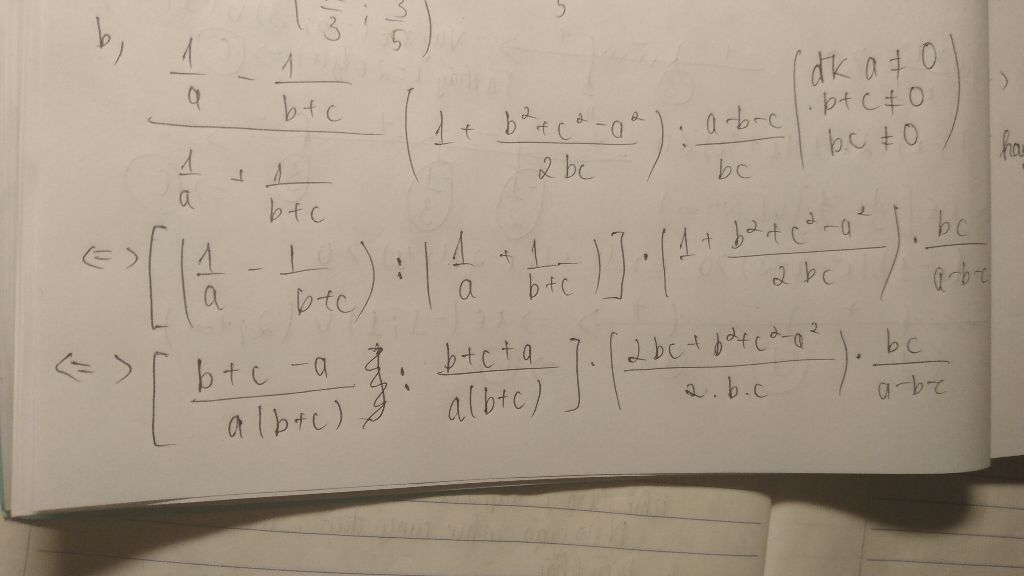 ( 5/3 ; 3/5 ) 5
b, (1/a - 1/(b+c)) / (1/a + 1/(b+c)) (1 + (b²+c²-a²)/2bc) : (a-b-c)/bc (đk a ≠ 0
b+c ≠ 0
b.c ≠ 0)
<=> [(1/a - 1/(b+c)) : (1/a + 1/(b+c))] . (1 + (b²+c²-a²)/2bc) . bc/(a-b-c)
<=> [(b+c-a)/(a(b+c)) : (b+c+a)/(a(b+c))] . ((2bc+b²+c²-a²)/(2.b.c)) . bc/(a-b-c)